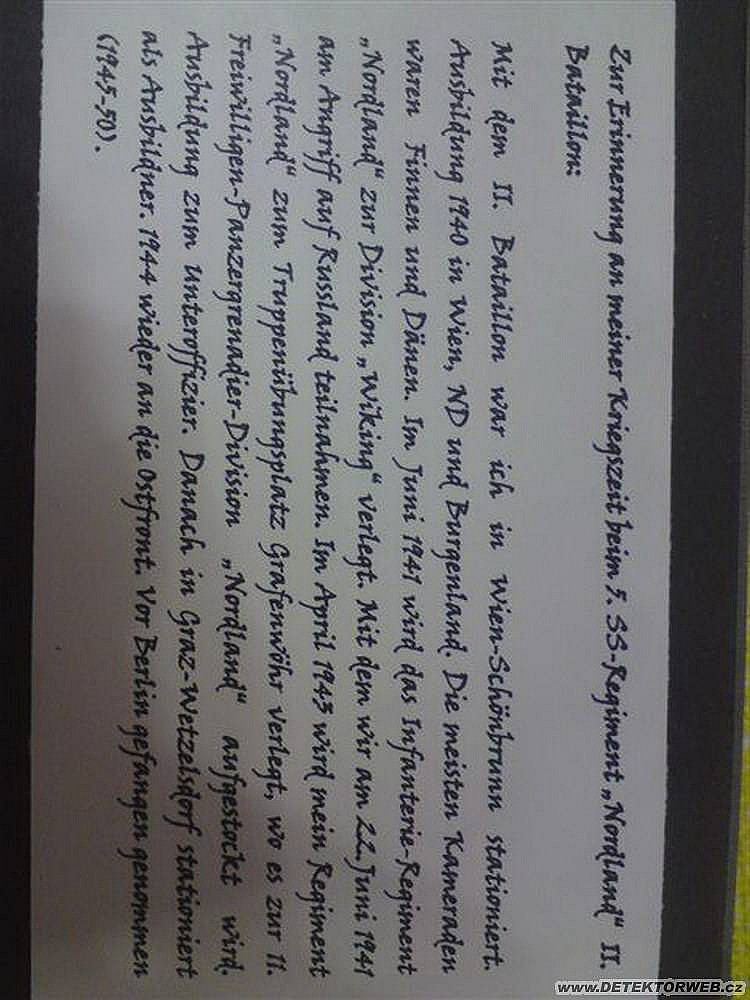 Zur Erinnerung an meiner Kriegszeit beim 5. SS-Regiment „Nordland“ II.
Bataillon:
Mit dem II. Bataillon war ich in Wien-Schönbrunn stationiert.
Ausbildung 1940 in Wien, ND und Burgenland. Die meisten Kameraden
waren Finnen und Dänen. Im Juni 1941 wird das Infanterie-Regiment
„Nordland“ zur Division „Wiking“ verlegt. Mit dem wir am 22. Juni 1941
am Angriff auf Russland teilnahmen. Im April 1943 wird mein Regiment
„Nordland“ zum Truppenübungsplatz Grafenwöhr verlegt, wo es zur 11.
Freiwilligen-Panzergrenadier-Division „Nordland“ aufgestockt wird.
Ausbildung zum Unteroffizier. Danach in Graz-Wetzelsdorf stationiert
als Ausbildner. 1944 wieder an die Ostfront. Vor Berlin gefangen genommen
(1945-50).
www.DETEKTORWEB.cz